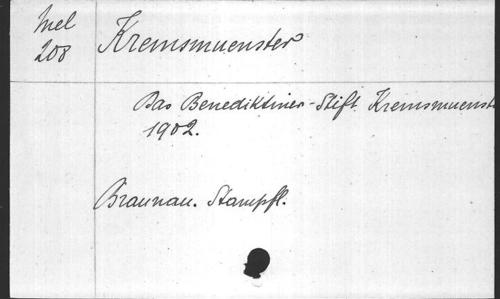 Mel
208
Kremsmuenster
Das Benediktiner-Stift Kremsmuenst
1902.
Braunau. Stampfl.